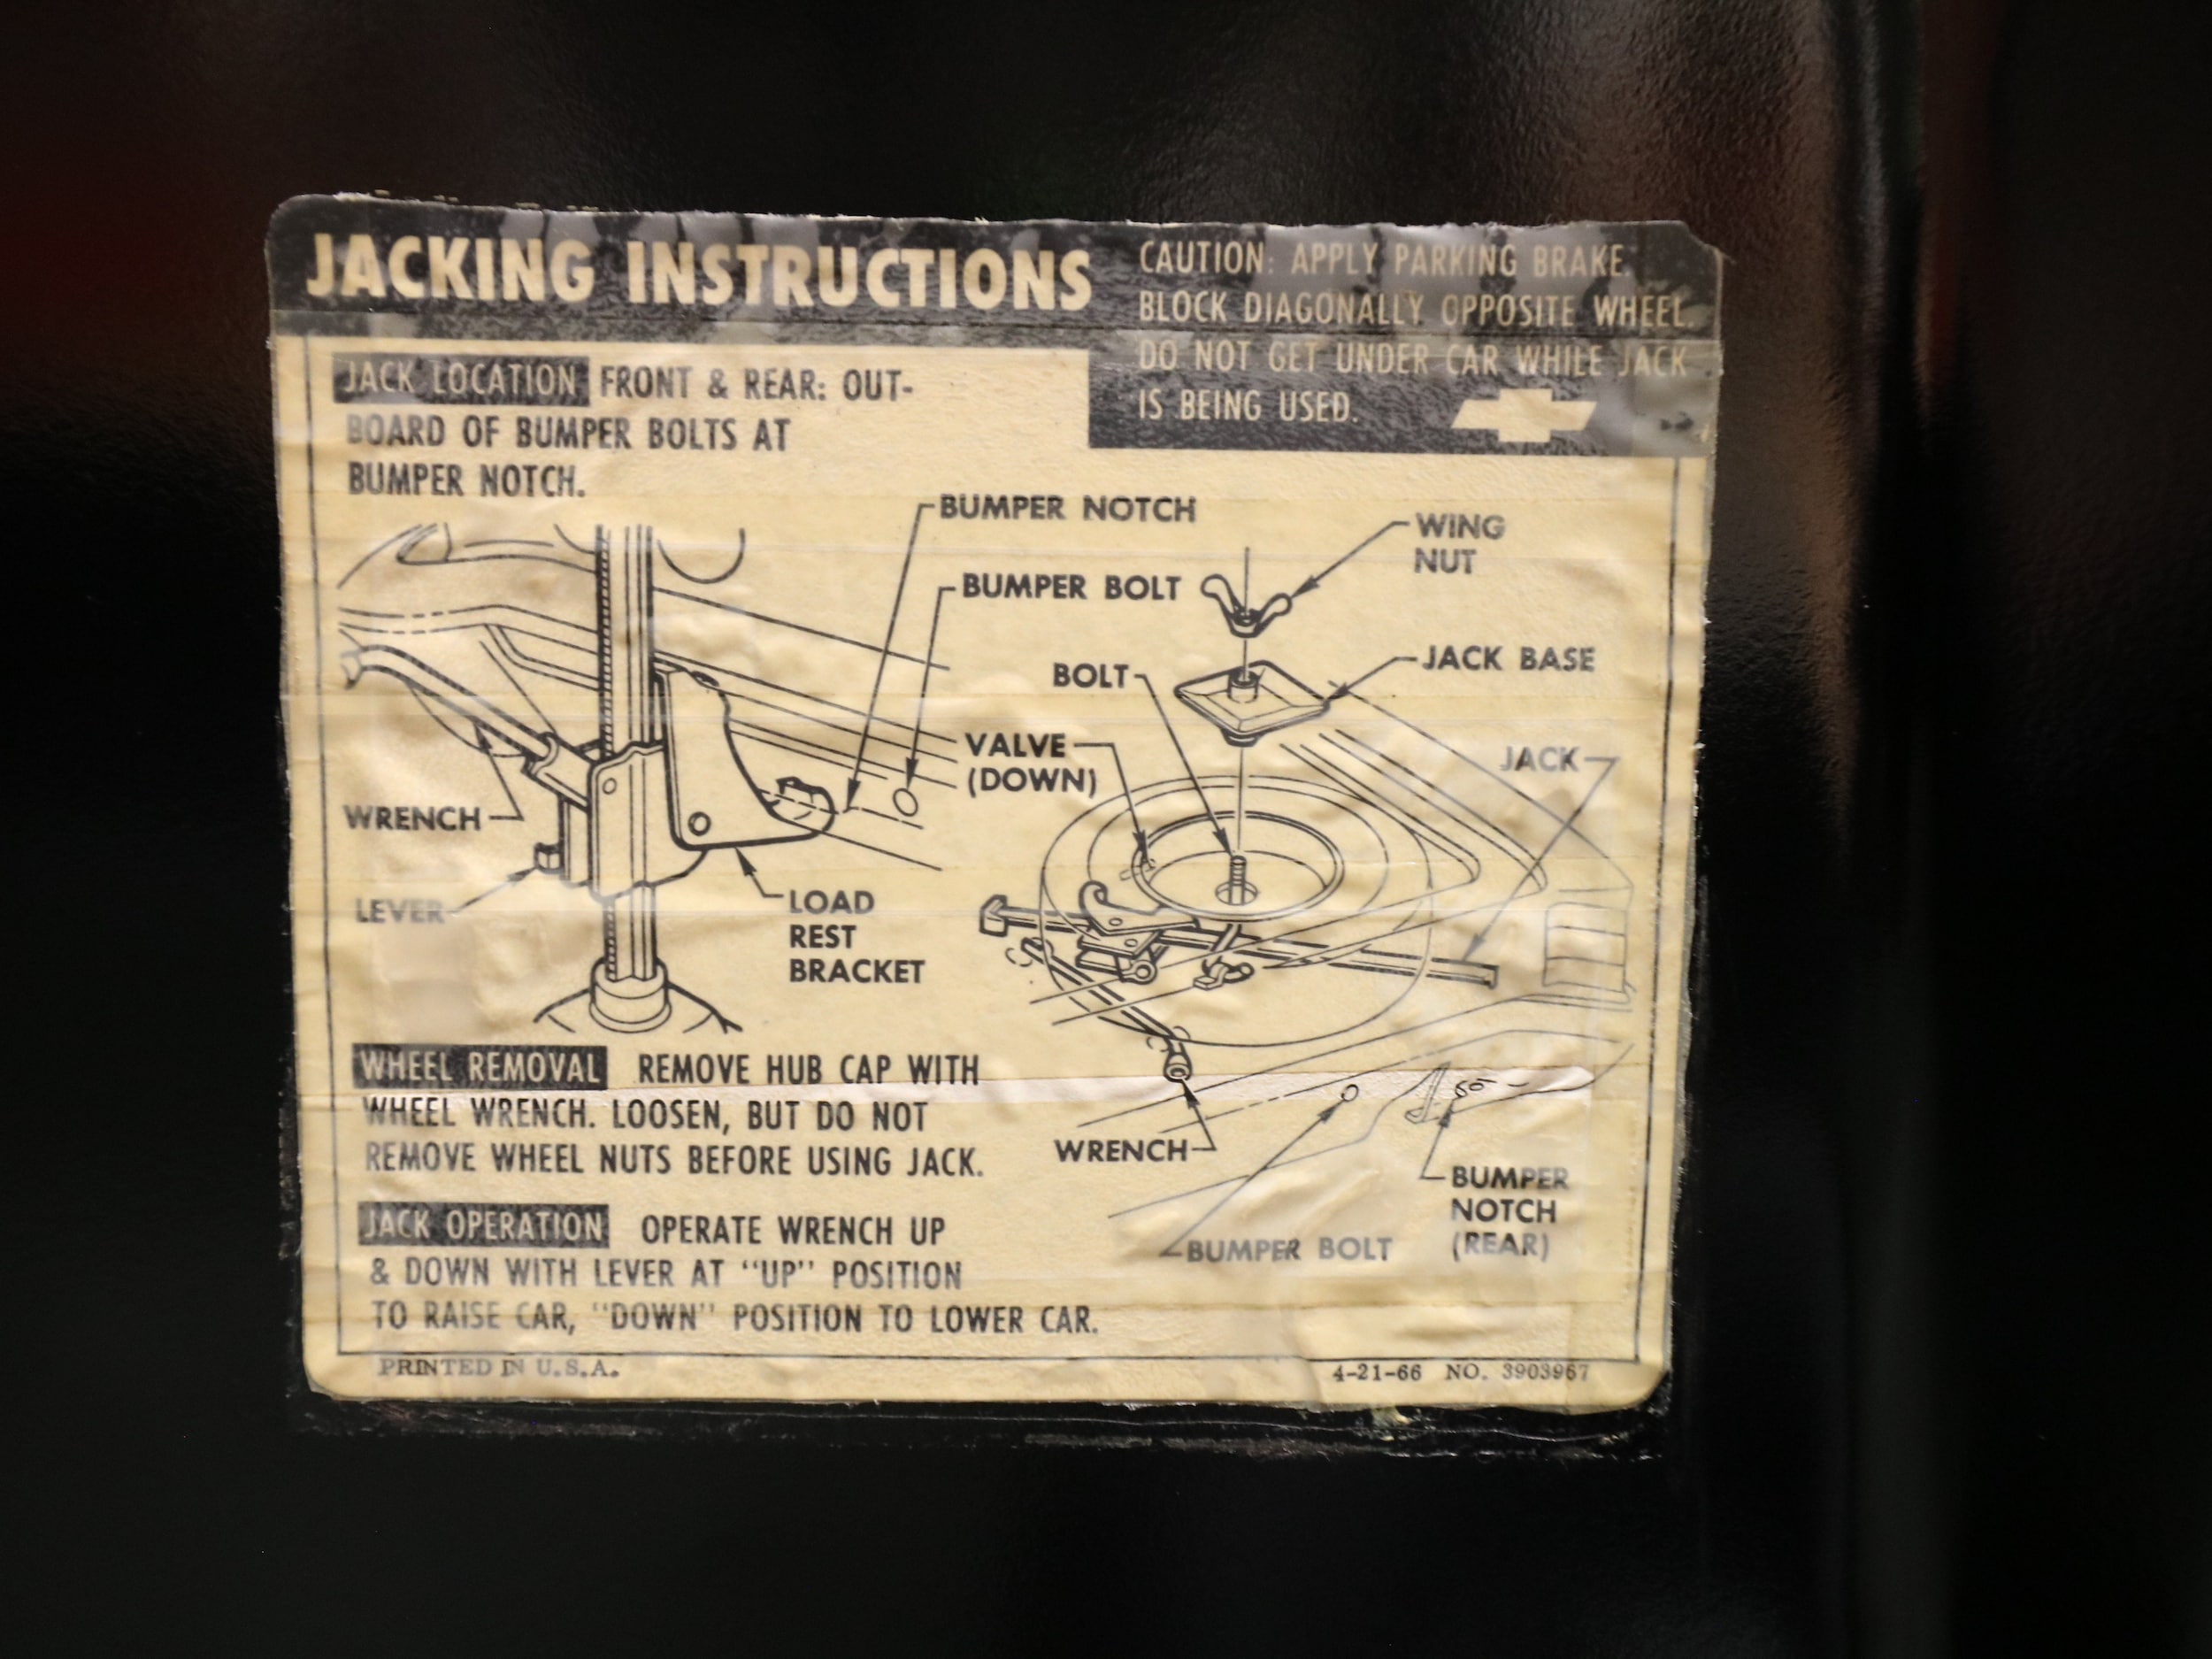 JACKING INSTRUCTIONS
CAUTION: APPLY PARKING BRAKE.
BLOCK DIAGONALLY OPPOSITE WHEEL.
DO NOT GET UNDER CAR WHILE JACK
IS BEING USED.
JACK LOCATION FRONT & REAR: OUT-
BOARD OF BUMPER BOLTS AT
BUMPER NOTCH.
BUMPER NOTCH
BUMPER BOLT
WRENCH
LEVER
LOAD
REST
BRACKET
WING
NUT
JACK BASE
BOLT
VALVE
(DOWN)
JACK
WRENCH
BUMPER BOLT
BUMPER
NOTCH
(REAR)
WHEEL REMOVAL REMOVE HUB CAP WITH
WHEEL WRENCH. LOOSEN, BUT DO NOT
REMOVE WHEEL NUTS BEFORE USING JACK.
JACK OPERATION OPERATE WRENCH UP
& DOWN WITH LEVER AT "UP" POSITION
TO RAISE CAR, "DOWN" POSITION TO LOWER CAR.
PRINTED IN U.S.A.
4-21-66 NO. 3903967